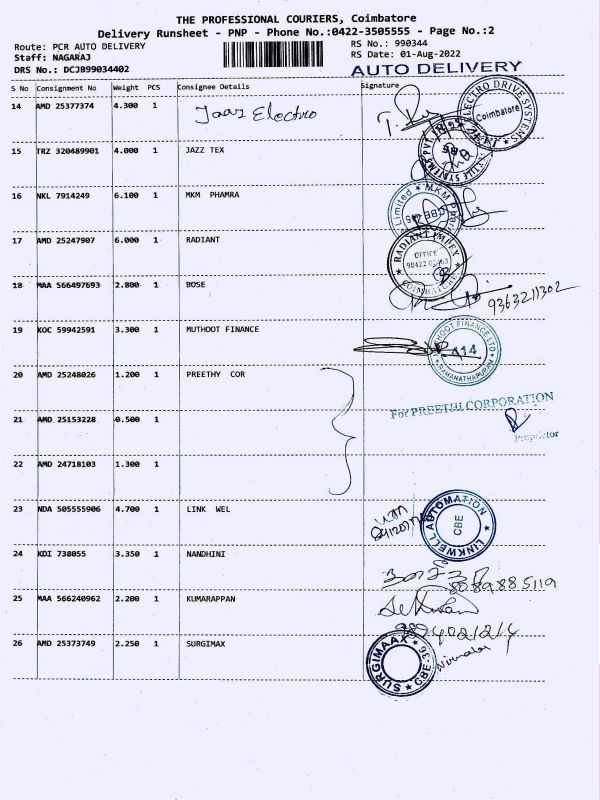 THE PROFESSIONAL COURIERS, Coimbatore
Delivery Runsheet - PNP - Phone No.:0422-3505555 - Page No.:2
Route: PCR AUTO DELIVERY
RS No.: 990344
Staff: NAGARAJ
RS Date: 01-Aug-2022
DRS No.: DCJB99034402
AUTO DELIVERY
S No Consignment No Weight PCS Consignee Details Signature
14 AMD 25377374 4.300 1 Jaas Electro
ECTRO DRIVE SYSTEMS
Coimbatore
15 TRZ 320489901 4.000 1 JAZZ TEX
16 NKL 7914249 6.100 1 MKM PHAMRA
Limited * MKM
17 AMD 25247907 6.000 1 RADIANT
RADIANT IMPEX
OFFICE
COIMBATORE
18 MAA 566497693 2.800 1 BOSE
9363211302
19 KOC 59942591 3.300 1 MUTHOOT FINANCE
MUTHOOT FINANCE LTD
A14
RAMANATHAPURAM
20 AMD 25248026 1.200 1 PREETHY COR
For PREETHI CORPORATION
Proprietor
21 AMD 25153228 0.500 1
22 AMD 24718103 1.300 1
23 NDA 505555906 4.700 1 LINK WEL
LINKWELL AUTOMATION
CBE
24 KDI 738055 3.350 1 NANDHINI
25 MAA 566240962 2.200 1 KUMARAPPAN
26 AMD 25373749 2.250 1 SURGIMAX
SURGIMAAX * CBE-36